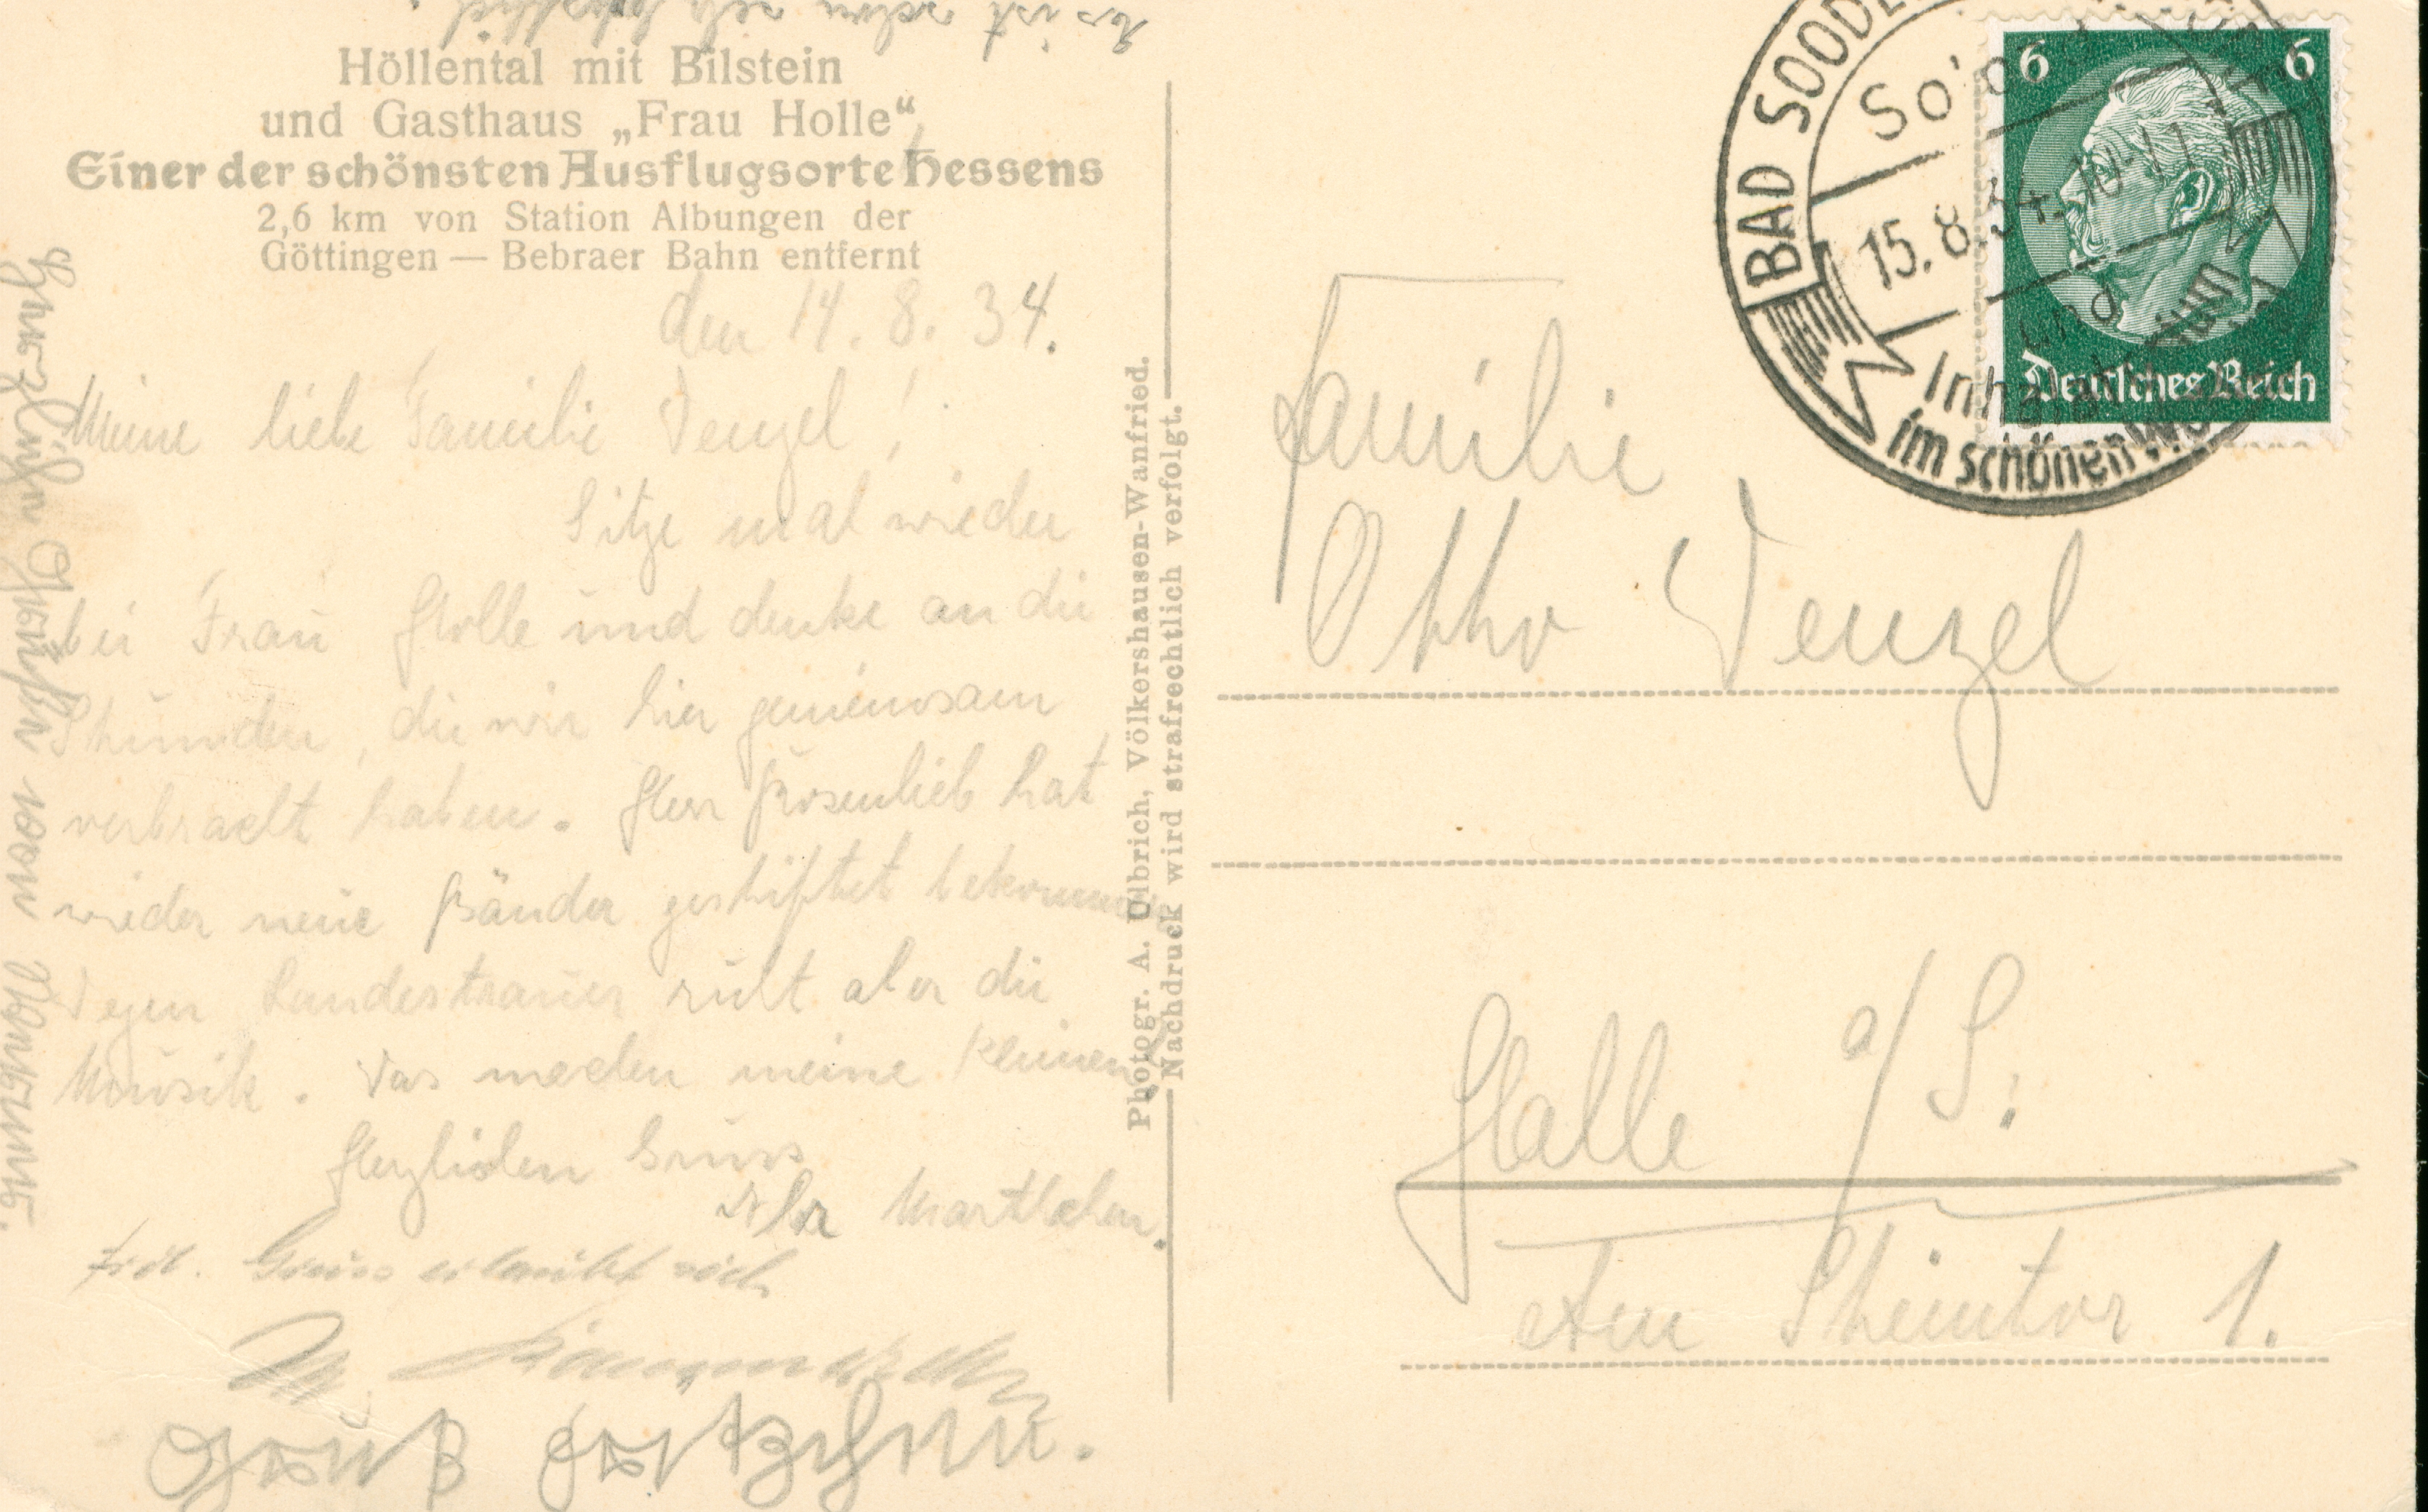 Es ist schon sehr
Höllental mit Bilstein
und Gasthaus „Frau Holle“
Einer der schönsten Ausflugsorte Hessens
2,6 km von Station Albungen der
Göttingen — Bebraer Bahn entfernt
den 14. 8. 34.
Meine liebe Familie Wenzel!
Sitze mal wieder
bei Frau Holle und denke an die
Stunden, die wir hier gemeinsam
verbracht haben. Herr Rosenlieb hat
wieder neue Bänder gestiftet bekommen
Wegen Landestrauer ruht aber die
Musik. Was machen meine Kleinen?
Herzlichen Gruss
Ihr
Frdl. Gruss erlaubt sich
Gruß
Herzliche Grüße von
Photogr. A. Ulbrich, Völkershausen-Wanfried.
Nachdruck wird strafrechtlich verfolgt.
BAD SOODEN
So
15.8.34. 10-11
und
Inhalat
im schönen We
6 6
Deutsches Reich
Familie
Otto Wenzel
Halle a/S.
Am Steintor 1.